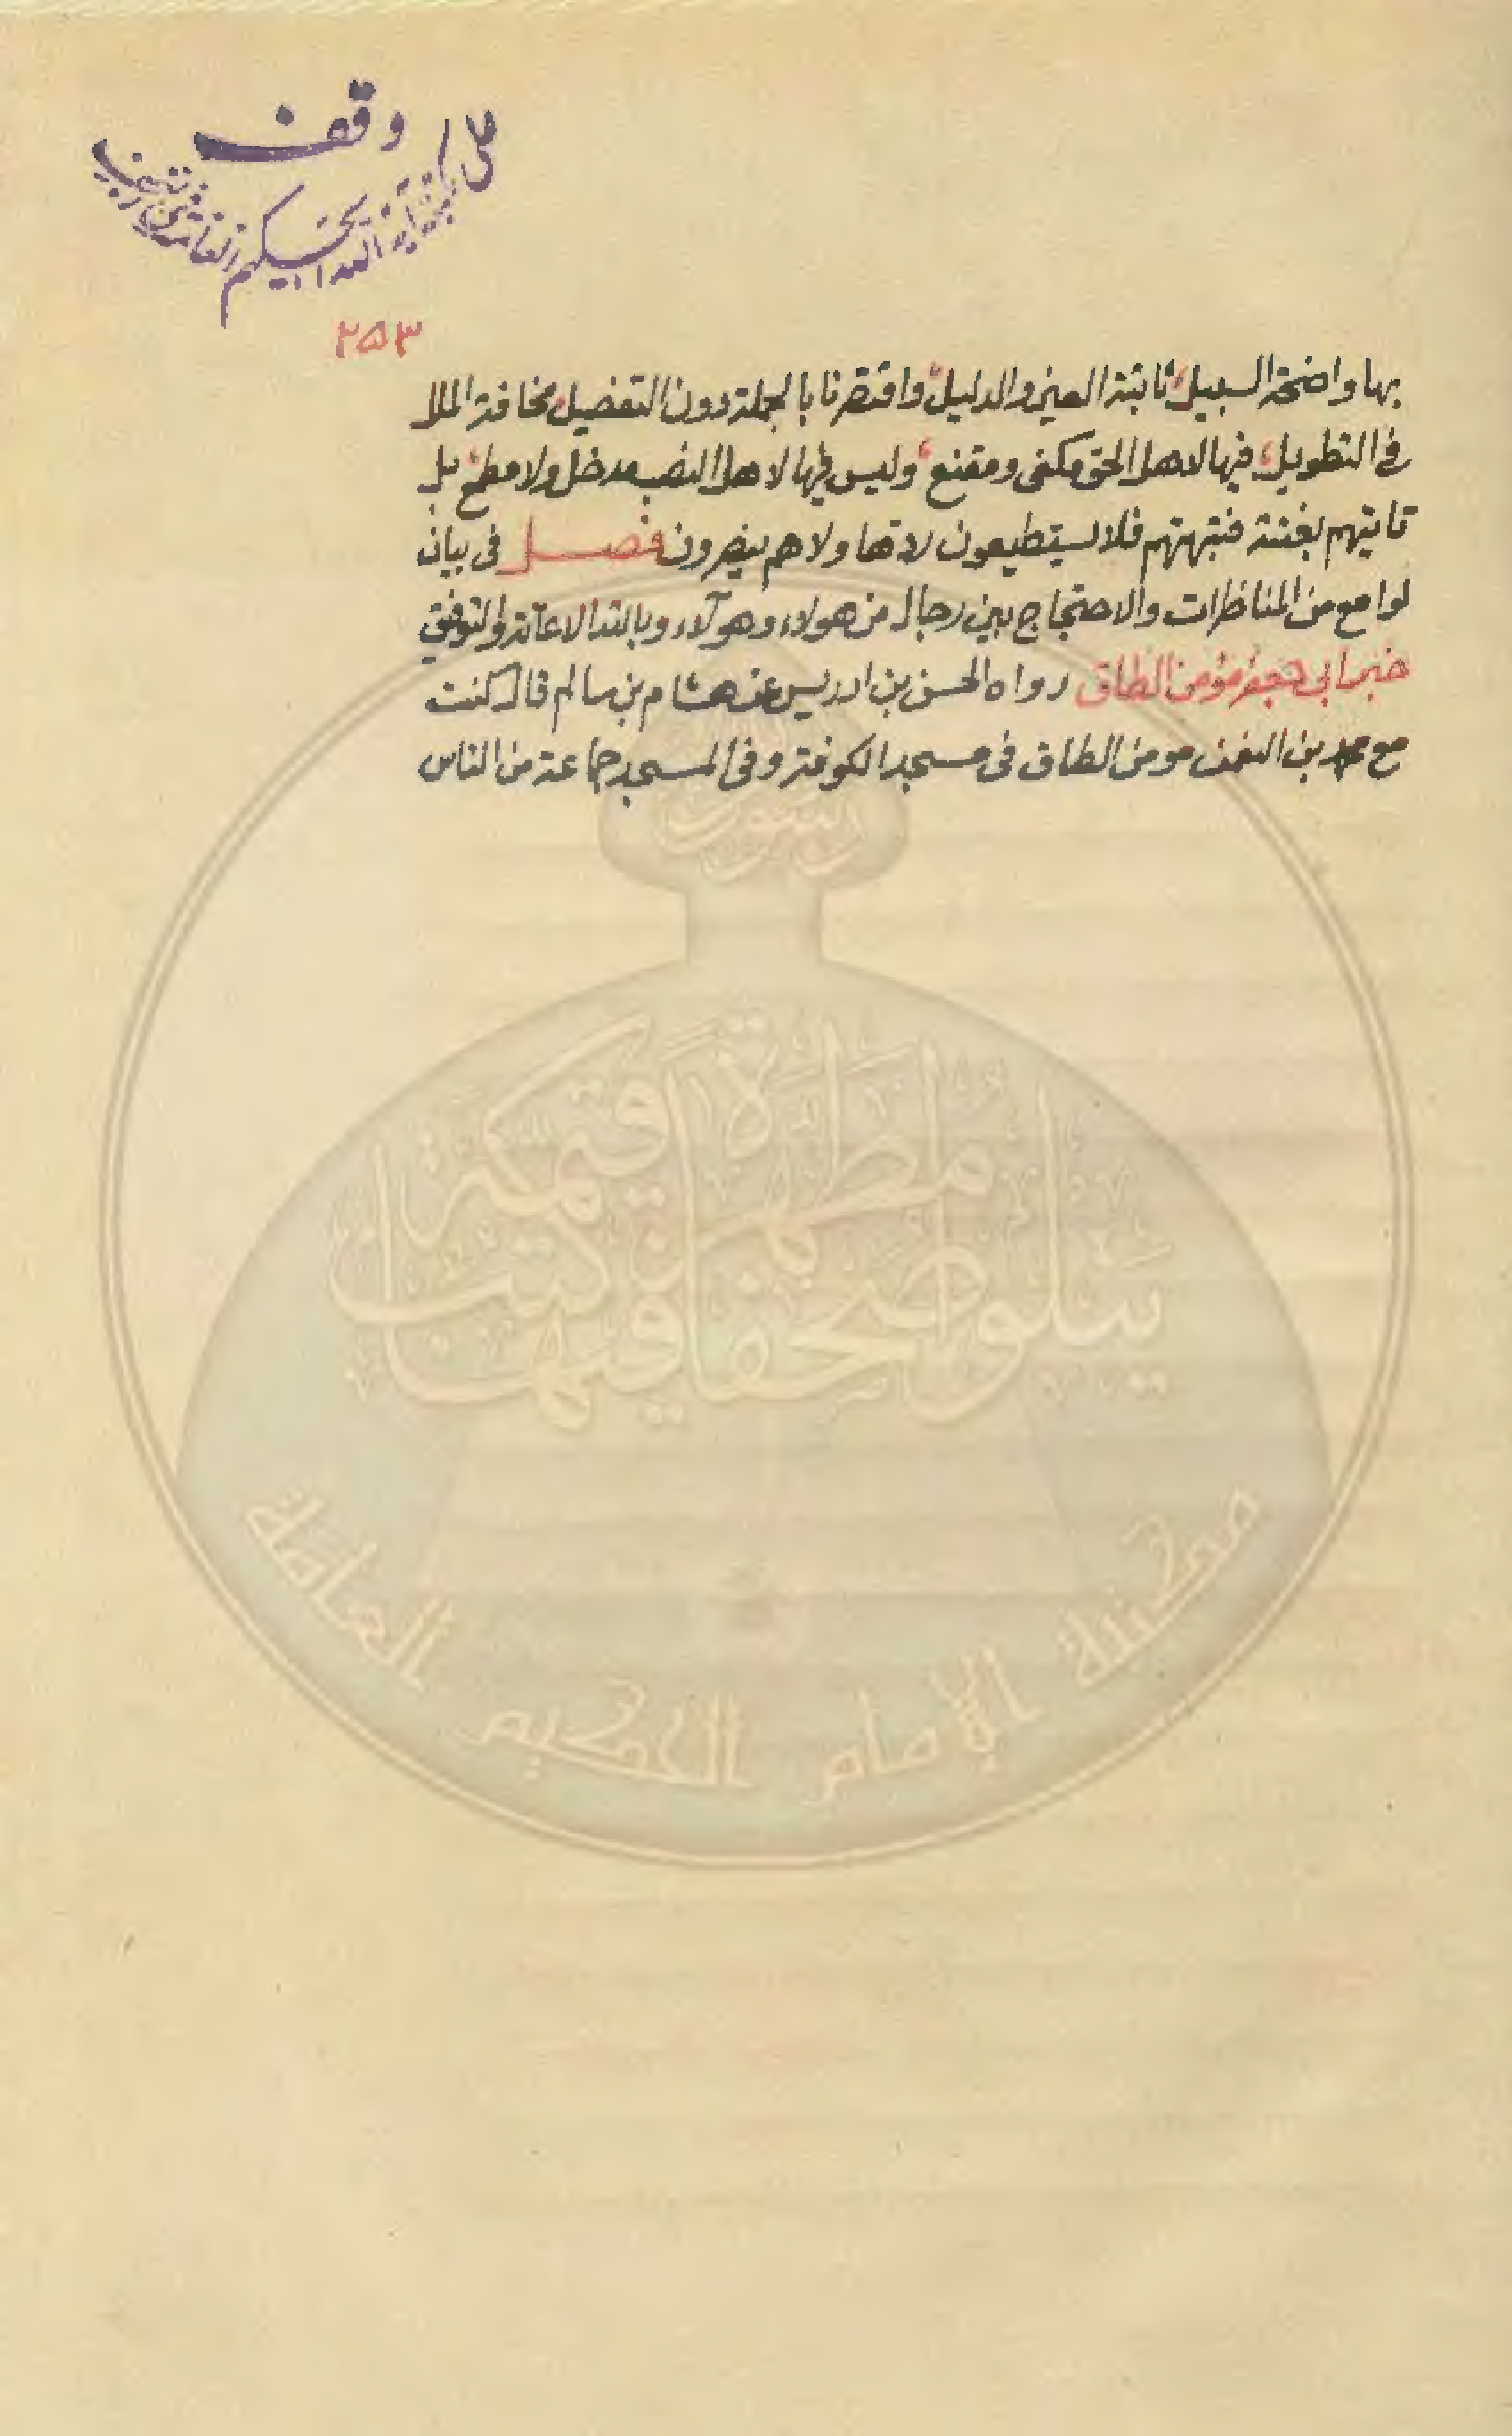 وقف
على مكتبة آية الله الحكيم العامة
٢٥٣
بها واضحة السبيل ثابتة العين والدليل واقتصرنا بالجملة دون التفصيل مخافة الملل
في التطويل فيها لاهل الحق مكفى ومقنع وليس فيها لاهل النصب مدخل ولا مطمع بل
تاتيهم بغتتة فتبهتهم فلا يستطيعون ردها ولا هم ينصرون فصل في بيان
لوامع من المناظرات والاحتجاج بين رجال من هولاء وهولاء وبالله الاعانة والتوفيق
خبر ابي جعفر مؤمن الطاق رواه الحسن بن ادريس عن هشام بن سالم قال كنت
مع محمد بن النعمن مومن الطاق في مسجد الكوفة وفي المسجد جماعة من الناس
رسول
مطهرة فيها كتب قيمة
يتلو صحفا
مكتبة الإمام الحكيم العامة